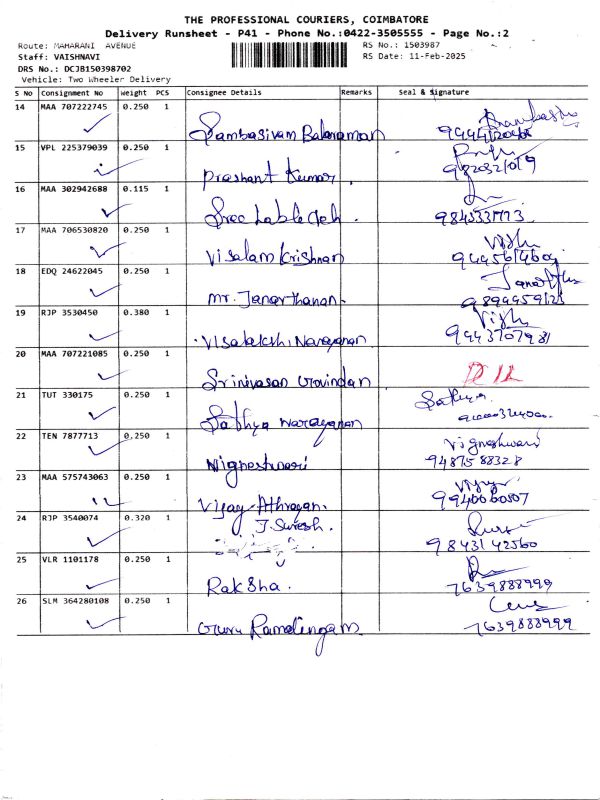 THE PROFESSIONAL COURIERS, COIMBATORE
Delivery Runsheet - P41 - Phone No.:0422-3505555 - Page No.:2
Route: MAHARANI AVENUE
RS No.: 1503987
Staff: VAISHNAVI
RS Date: 11-Feb-2025
DRS No.: DCJB150398702
Vehicle: Two Wheeler Delivery
S No Consignment No Weight PCS Consignee Details Remarks Seal & Signature
14 MAA 707222745 0.250 1
Sambasivam Balaraman
15 VPL 225379039 0.250 1
Prashant Kumar
16 MAA 302942688 0.115 1
Sree
17 MAA 706530820 0.250 1
Visalam Krishnan
18 EDQ 24622045 0.250 1
Mr. Janarthanan.
19 RJP 3530450 0.380 1
Visalakshi Narayanan
20 MAA 707221085 0.250 1
Srinivasan Govindan
21 TUT 330175 0.250 1
Sathya
Sathya Narayanan
22 TEN 7877713 0.250 1
Vigneshwari
Vigneshwari 9487588328
23 MAA 575743063 0.250 1
Vijay
24 RJP 3540074 0.320 1 J. Suresh.
9843142560
25 VLR 1101178 0.250 1
Raksha. 7639888999
26 SLM 364280108 0.250 1
Guru Ramalingam 7639888999